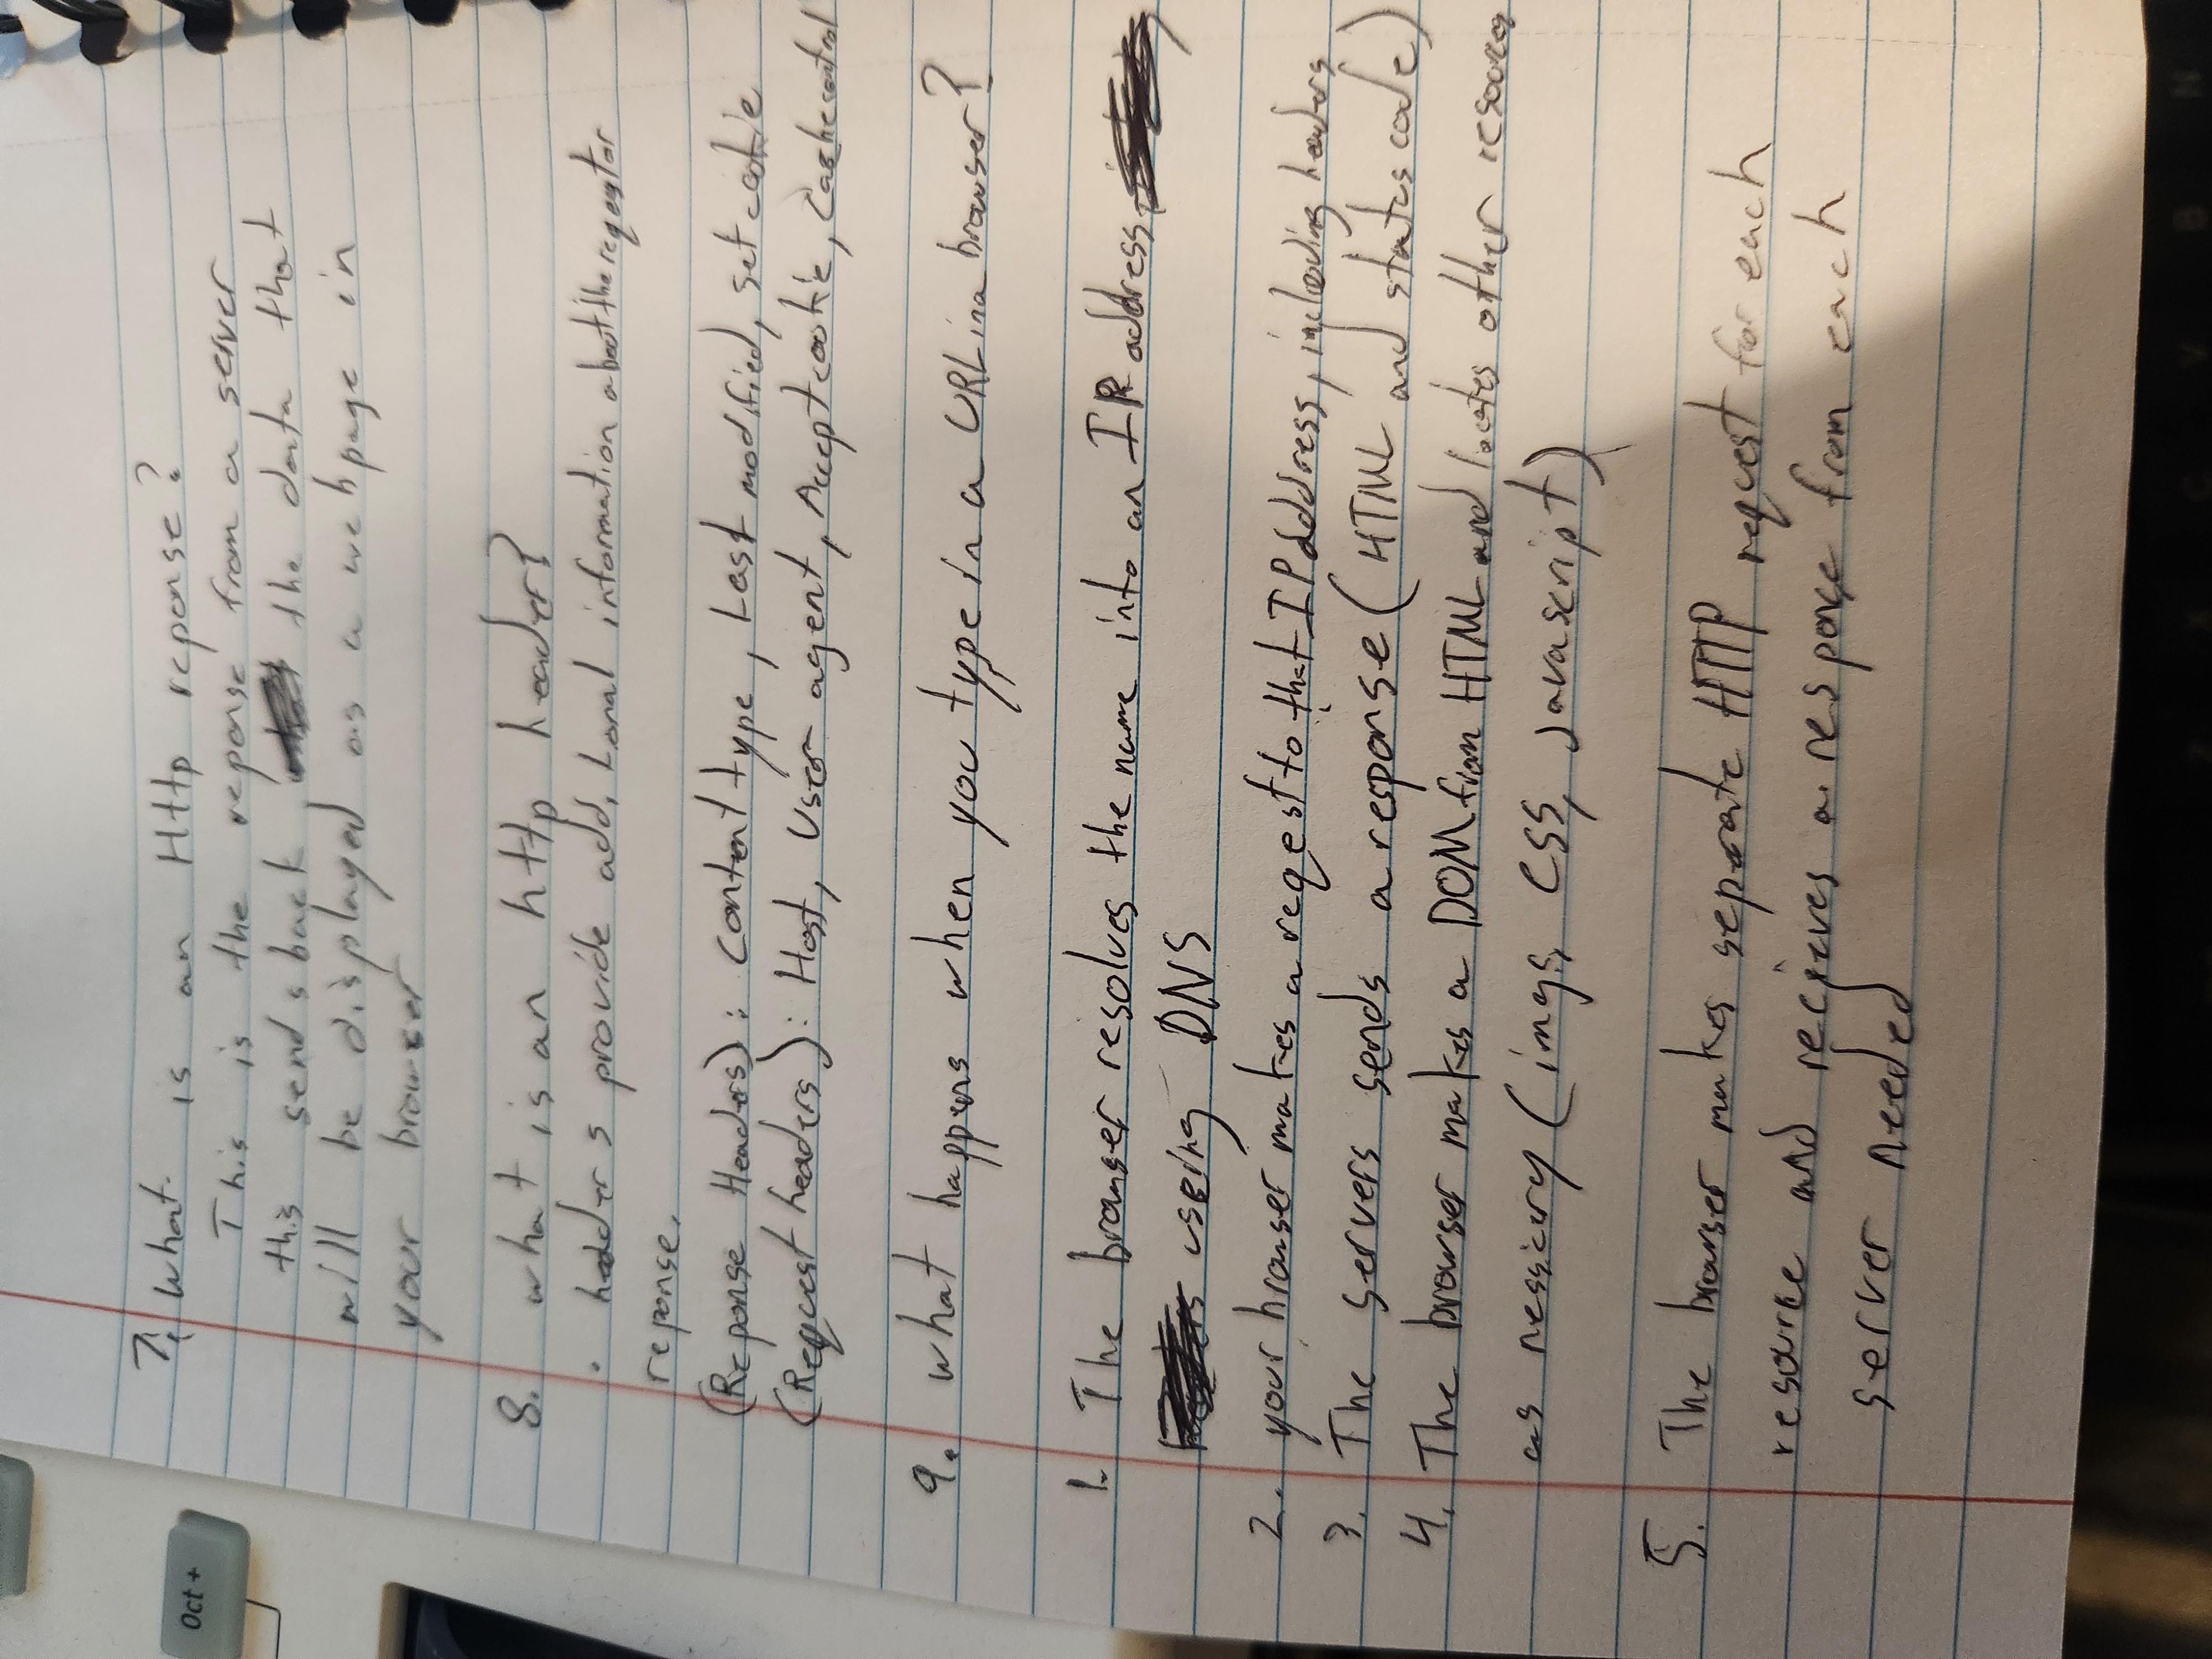 Oct +
7. What is an Http reponse?
This is the reponse from a server
this sends back the data that
will be displayed as a webpage in
your browser
8. what is an http header?
· headers provide additonal information about the request or
reponse.
(Reponse Headers): Content type, Last modified, set cookie
(Request headers): Host, User agent, Accept cookie, Cache control
9. what happens when you type in a URL in a browser?
1. The browser resolves the name into an IP address
useing DNS
2. your browser makes a reqest to that IP address, including headers
3. The servers sends a response (HTML and status code)
4. The browser makes a DOM from HTML and locates other resources
as nessicary (imgs, CSS, Javascript)
5. The browser makes seperate HTTP request for each
resource and recieves a response from each
server needed
X C V B N